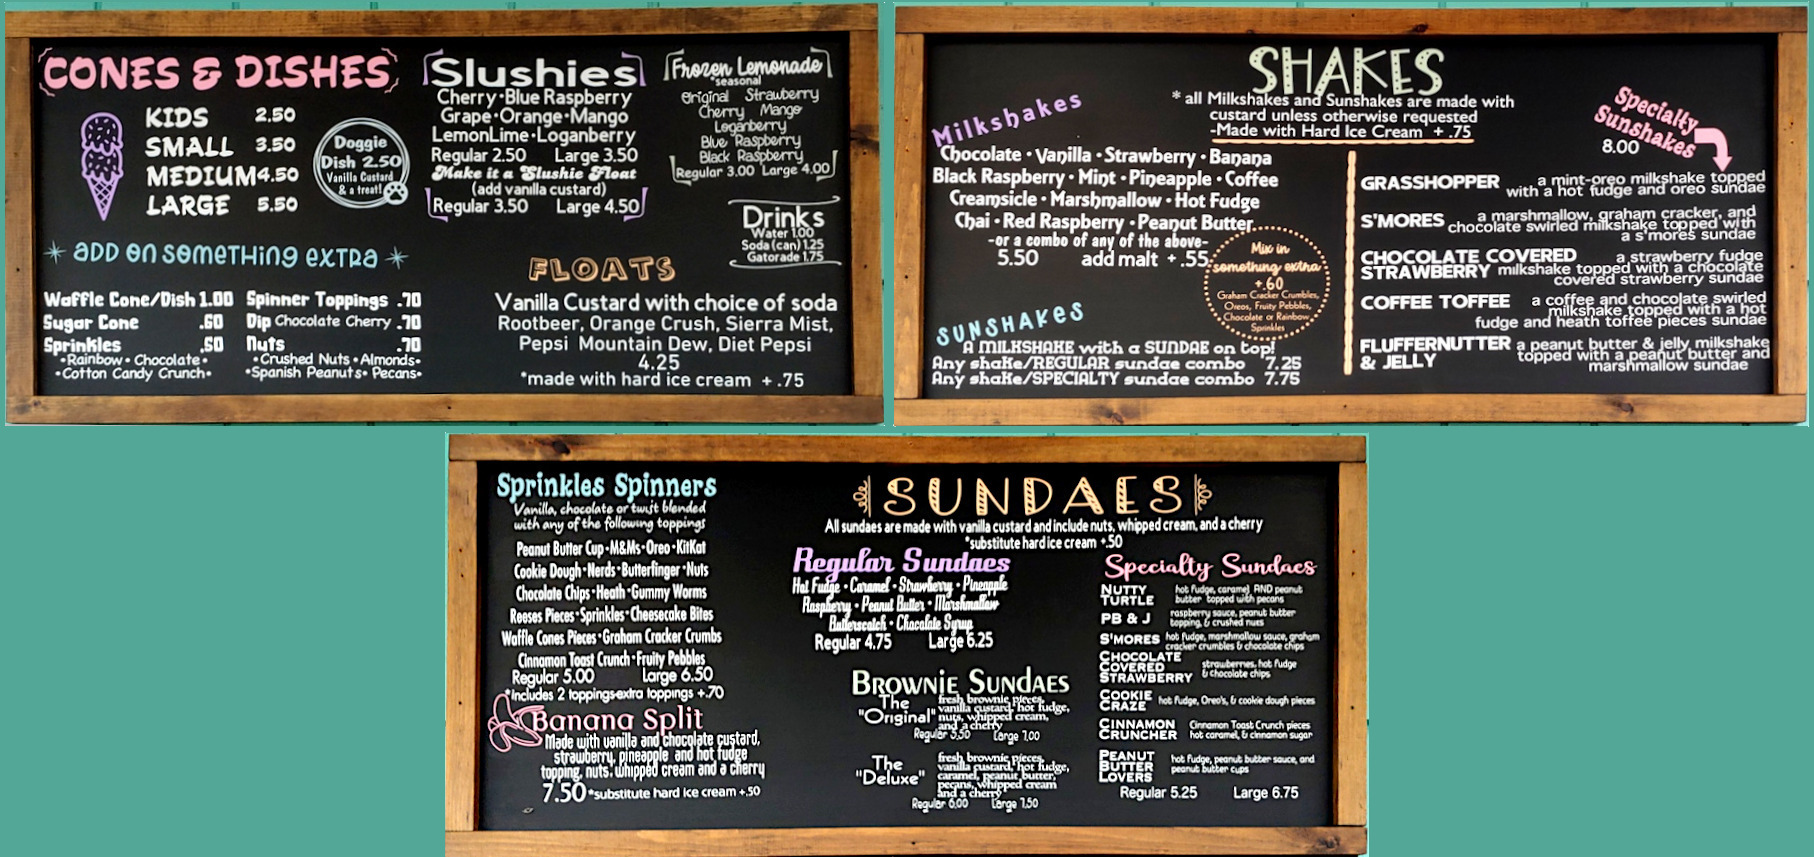 CONES & DISHES
KIDS 2.50
SMALL 3.50
MEDIUM 4.50
LARGE 5.50
Doggie
Dish 2.50
Vanilla Custard
& a treat!
ADD ON SOMETHING EXTRA
Waffle Cone/Dish 1.00
Sugar Cone .60
Sprinkles .60
•Rainbow • Chocolate•
•Cotton Candy Crunch•
Spinner Toppings .70
Dip Chocolate Cherry .70
Nuts .70
•Crushed Nuts •Almonds•
•Spanish Peanuts• Pecans•
Slushies
Cherry•Blue Raspberry
Grape•Orange•Mango
LemonLime•Loganberry
Regular 2.50 Large 3.50
Make it a Slushie Float
(add vanilla custard)
Regular 3.50 Large 4.50
Frozen Lemonade
*seasonal
Original Strawberry
Cherry Mango
Loganberry
Blue Raspberry
Black Raspberry
Regular 3.00 Large 4.00
Drinks
Water 1.00
Soda (can) 1.25
Gatorade 1.75
FLOATS
Vanilla Custard with choice of soda
Rootbeer, Orange Crush, Sierra Mist,
Pepsi Mountain Dew, Diet Pepsi
4.25
*made with hard ice cream + .75
SHAKES
* all Milkshakes and Sunshakes are made with
custard unless otherwise requested
-Made with Hard Ice Cream + .75
Milkshakes
Chocolate • Vanilla • Strawberry • Banana
Black Raspberry • Mint • Pineapple • Coffee
Creamsicle • Marshmallow • Hot Fudge
Chai • Red Raspberry • Peanut Butter
-or a combo of any of the above-
5.50 add malt + .55
Mix in
something extra
+.60
Graham Cracker Crumbles,
Oreos, Fruity Pebbles,
Chocolate or Rainbow
Sprinkles
SUNSHAKES
A MILKSHAKE with a SUNDAE on top!
Any shake/REGULAR sundae combo 7.25
Any shake/SPECIALTY sundae combo 7.75
Specialty
Sunshakes
8.00
GRASSHOPPER a mint-oreo milkshake topped
with a hot fudge and oreo sundae
S'MORES a marshmallow, graham cracker, and
chocolate swirled milkshake topped with
a s'mores sundae
CHOCOLATE COVERED a strawberry fudge
STRAWBERRY milkshake topped with a chocolate
covered strawberry sundae
COFFEE TOFFEE a coffee and chocolate swirled
milkshake topped with a hot
fudge and heath toffee pieces sundae
FLUFFERNUTTER a peanut butter & jelly milkshake
& JELLY topped with a peanut butter and
marshmallow sundae
Sprinkles Spinners
Vanilla, chocolate or twist blended
with any of the following toppings
Peanut Butter Cup•M&Ms•Oreo•KitKat
Cookie Dough•Nerds•Butterfinger•Nuts
Chocolate Chips•Heath•Gummy Worms
Reeses Pieces•Sprinkles•Cheesecake Bites
Waffle Cones Pieces•Graham Cracker Crumbs
Cinnamon Toast Crunch•Fruity Pebbles
Regular 5.00 Large 6.50
*Includes 2 toppings-extra toppings +.70
Banana Split
Made with vanilla and chocolate custard,
strawberry, pineapple and hot fudge
topping, nuts, whipped cream and a cherry
7.50 *substitute hard ice cream +.50
SUNDAES
All sundaes are made with vanilla custard and include nuts, whipped cream, and a cherry
*substitute hard ice cream +.50
Regular Sundaes
Hot Fudge • Caramel • Strawberry • Pineapple
Raspberry • Peanut Butter • Marshmallow
Butterscotch • Chocolate Syrup
Regular 4.75 Large 6.25
BROWNIE SUNDAES
The "Original"
fresh brownie pieces,
vanilla custard, hot fudge,
nuts, whipped cream,
and a cherry
Regular 5.50 Large 7.00
The "Deluxe"
fresh brownie pieces,
vanilla custard, hot fudge,
caramel, peanut butter,
pecans, whipped cream
and a cherry
Regular 6.00 Large 7.50
Specialty Sundaes
NUTTY hot fudge, caramel AND peanut
TURTLE butter topped with pecans
PB & J raspberry sauce, peanut butter
topping, & crushed nuts
S'MORES hot fudge, marshmallow sauce, graham
cracker crumbles & chocolate chips
CHOCOLATE
COVERED strawberries, hot fudge
STRAWBERRY & chocolate chips
COOKIE
CRAZE hot fudge, Oreo's, & cookie dough pieces
CINNAMON Cinnamon Toast Crunch pieces
CRUNCHER hot caramel, & cinnamon sugar
PEANUT
BUTTER hot fudge, peanut butter sauce, and
LOVERS peanut butter cups
Regular 5.25 Large 6.75